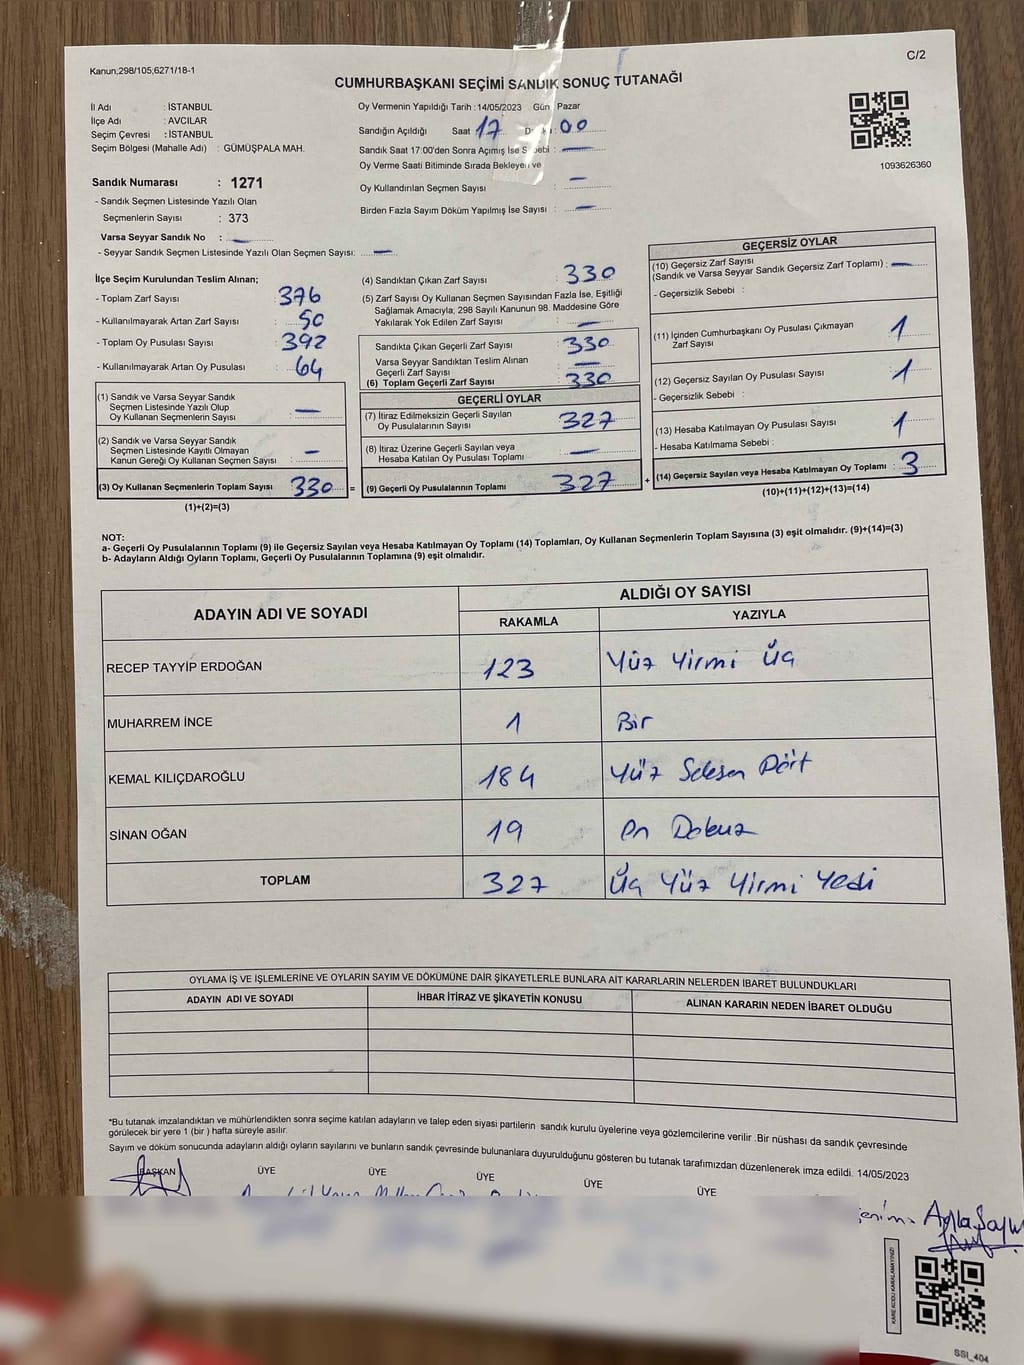 Kanun,298/105,6271/18-1
C/2
CUMHURBAŞKANI SEÇİMİ SANDIK SONUÇ TUTANAĞI
İl Adı : İSTANBUL
İlçe Adı : AVCILAR
Seçim Çevresi : İSTANBUL
Seçim Bölgesi (Mahalle Adı) : GÜMÜŞPALA MAH.
Sandık Numarası : 1271
- Sandık Seçmen Listesinde Yazılı Olan
Seçmenlerin Sayısı : 373
Varsa Seyyar Sandık No : —
- Seyyar Sandık Seçmen Listesinde Yazılı Olan Seçmen Sayısı: —
Oy Vermenin Yapıldığı Tarih : 14/05/2023 Gün Pazar
Sandığın Açıldığı Saat 17 : 00
Sandık Saat 17:00'den Sonra Açımış İse Sebebi : —
Oy Verme Saati Bitiminde Sırada Bekleyen ve
Oy Kullandırılan Seçmen Sayısı : —
Birden Fazla Sayım Döküm Yapılmış İse Sayısı : —
1093626360
İlçe Seçim Kurulundan Teslim Alınan;
- Toplam Zarf Sayısı : 376
- Kullanılmayarak Artan Zarf Sayısı : 50
- Toplam Oy Pusulası Sayısı : 392
- Kullanılmayarak Artan Oy Pusulası : 64
(1) Sandık ve Varsa Seyyar Sandık
Seçmen Listesinde Yazılı Olup
Oy Kullanan Seçmenlerin Sayısı : —
(2) Sandık ve Varsa Seyyar Sandık
Seçmen Listesinde Kayıtlı Olmayan
Kanun Gereği Oy Kullanan Seçmen Sayısı : —
(3) Oy Kullanan Seçmenlerin Toplam Sayısı 330 =
(1)+(2)=(3)
(4) Sandıktan Çıkan Zarf Sayısı : 330
(5) Zarf Sayısı Oy Kullanan Seçmen Sayısından Fazla İse, Eşitliği
Sağlamak Amacıyla, 298 Sayılı Kanunun 98. Maddesine Göre
Yakılarak Yok Edilen Zarf Sayısı : —
Sandıkta Çıkan Geçerli Zarf Sayısı : 330
Varsa Seyyar Sandıktan Teslim Alınan
Geçerli Zarf Sayısı : —
(6) Toplam Geçerli Zarf Sayısı : 330
GEÇERLİ OYLAR
(7) İtiraz Edilmeksizin Geçerli Sayılan
Oy Pusulalarının Sayısı : 327
(8) İtiraz Üzerine Geçerli Sayılan veya
Hesaba Katılan Oy Pusulası Toplamı : —
(9) Geçerli Oy Pusulalarının Toplamı : 327 +
GEÇERSİZ OYLAR
(10) Geçersiz Zarf Sayısı
(Sandık ve Varsa Seyyar Sandık Geçersiz Zarf Toplamı) : —
- Geçersizlik Sebebi :
(11) İçinden Cumhurbaşkanı Oy Pusulası Çıkmayan
Zarf Sayısı : 1
(12) Geçersiz Sayılan Oy Pusulası Sayısı : 1
- Geçersizlik Sebebi :
(13) Hesaba Katılmayan Oy Pusulası Sayısı : 1
- Hesaba Katılmama Sebebi :
(14) Geçersiz Sayılan veya Hesaba Katılmayan Oy Toplamı : 3
(10)+(11)+(12)+(13)=(14)
NOT:
a- Geçerli Oy Pusulalarının Toplamı (9) ile Geçersiz Sayılan veya Hesaba Katılmayan Oy Toplamı (14) Toplamları, Oy Kullanan Seçmenlerin Toplam Sayısına (3) eşit olmalıdır. (9)+(14)=(3)
b- Adayların Aldığı Oyların Toplamı, Geçerli Oy Pusulalarının Toplamına (9) eşit olmalıdır.
ADAYIN ADI VE SOYADI ALDIĞI OY SAYISI
RAKAMLA YAZIYLA
RECEP TAYYİP ERDOĞAN 123 Yüz Yirmi Üç
MUHARREM İNCE 1 Bir
KEMAL KILIÇDAROĞLU 184 Yüz Seksen Dört
SİNAN OĞAN 19 On Dokuz
TOPLAM 327 Üç Yüz Yirmi Yedi
OYLAMA İŞ VE İŞLEMLERİNE VE OYLARIN SAYIM VE DÖKÜMÜNE DAİR ŞİKAYETLERLE BUNLARA AİT KARARLARIN NELERDEN İBARET BULUNDUKLARI
ADAYIN ADI VE SOYADI İHBAR İTİRAZ VE ŞİKAYETİN KONUSU ALINAN KARARIN NEDEN İBARET OLDUĞU
*Bu tutanak imzalandıktan ve mühürlendikten sonra seçime katılan adayların ve talep eden siyasi partilerin sandık kurulu üyelerine veya gözlemcilerine verilir .Bir nüshası da sandık çevresinde
görülecek bir yere 1 (bir ) hafta süreyle asılır.
Sayım ve döküm sonucunda adayların aldığı oyların sayılarını ve bunların sandık çevresinde bulunanlara duyurulduğunu gösteren bu tutanak tarafımızdan düzenlenerek imza edildi. 14/05/2023
BAŞKAN ÜYE ÜYE ÜYE ÜYE ÜYE
KARE KODU KARALAMAYINIZ!
SSI_404